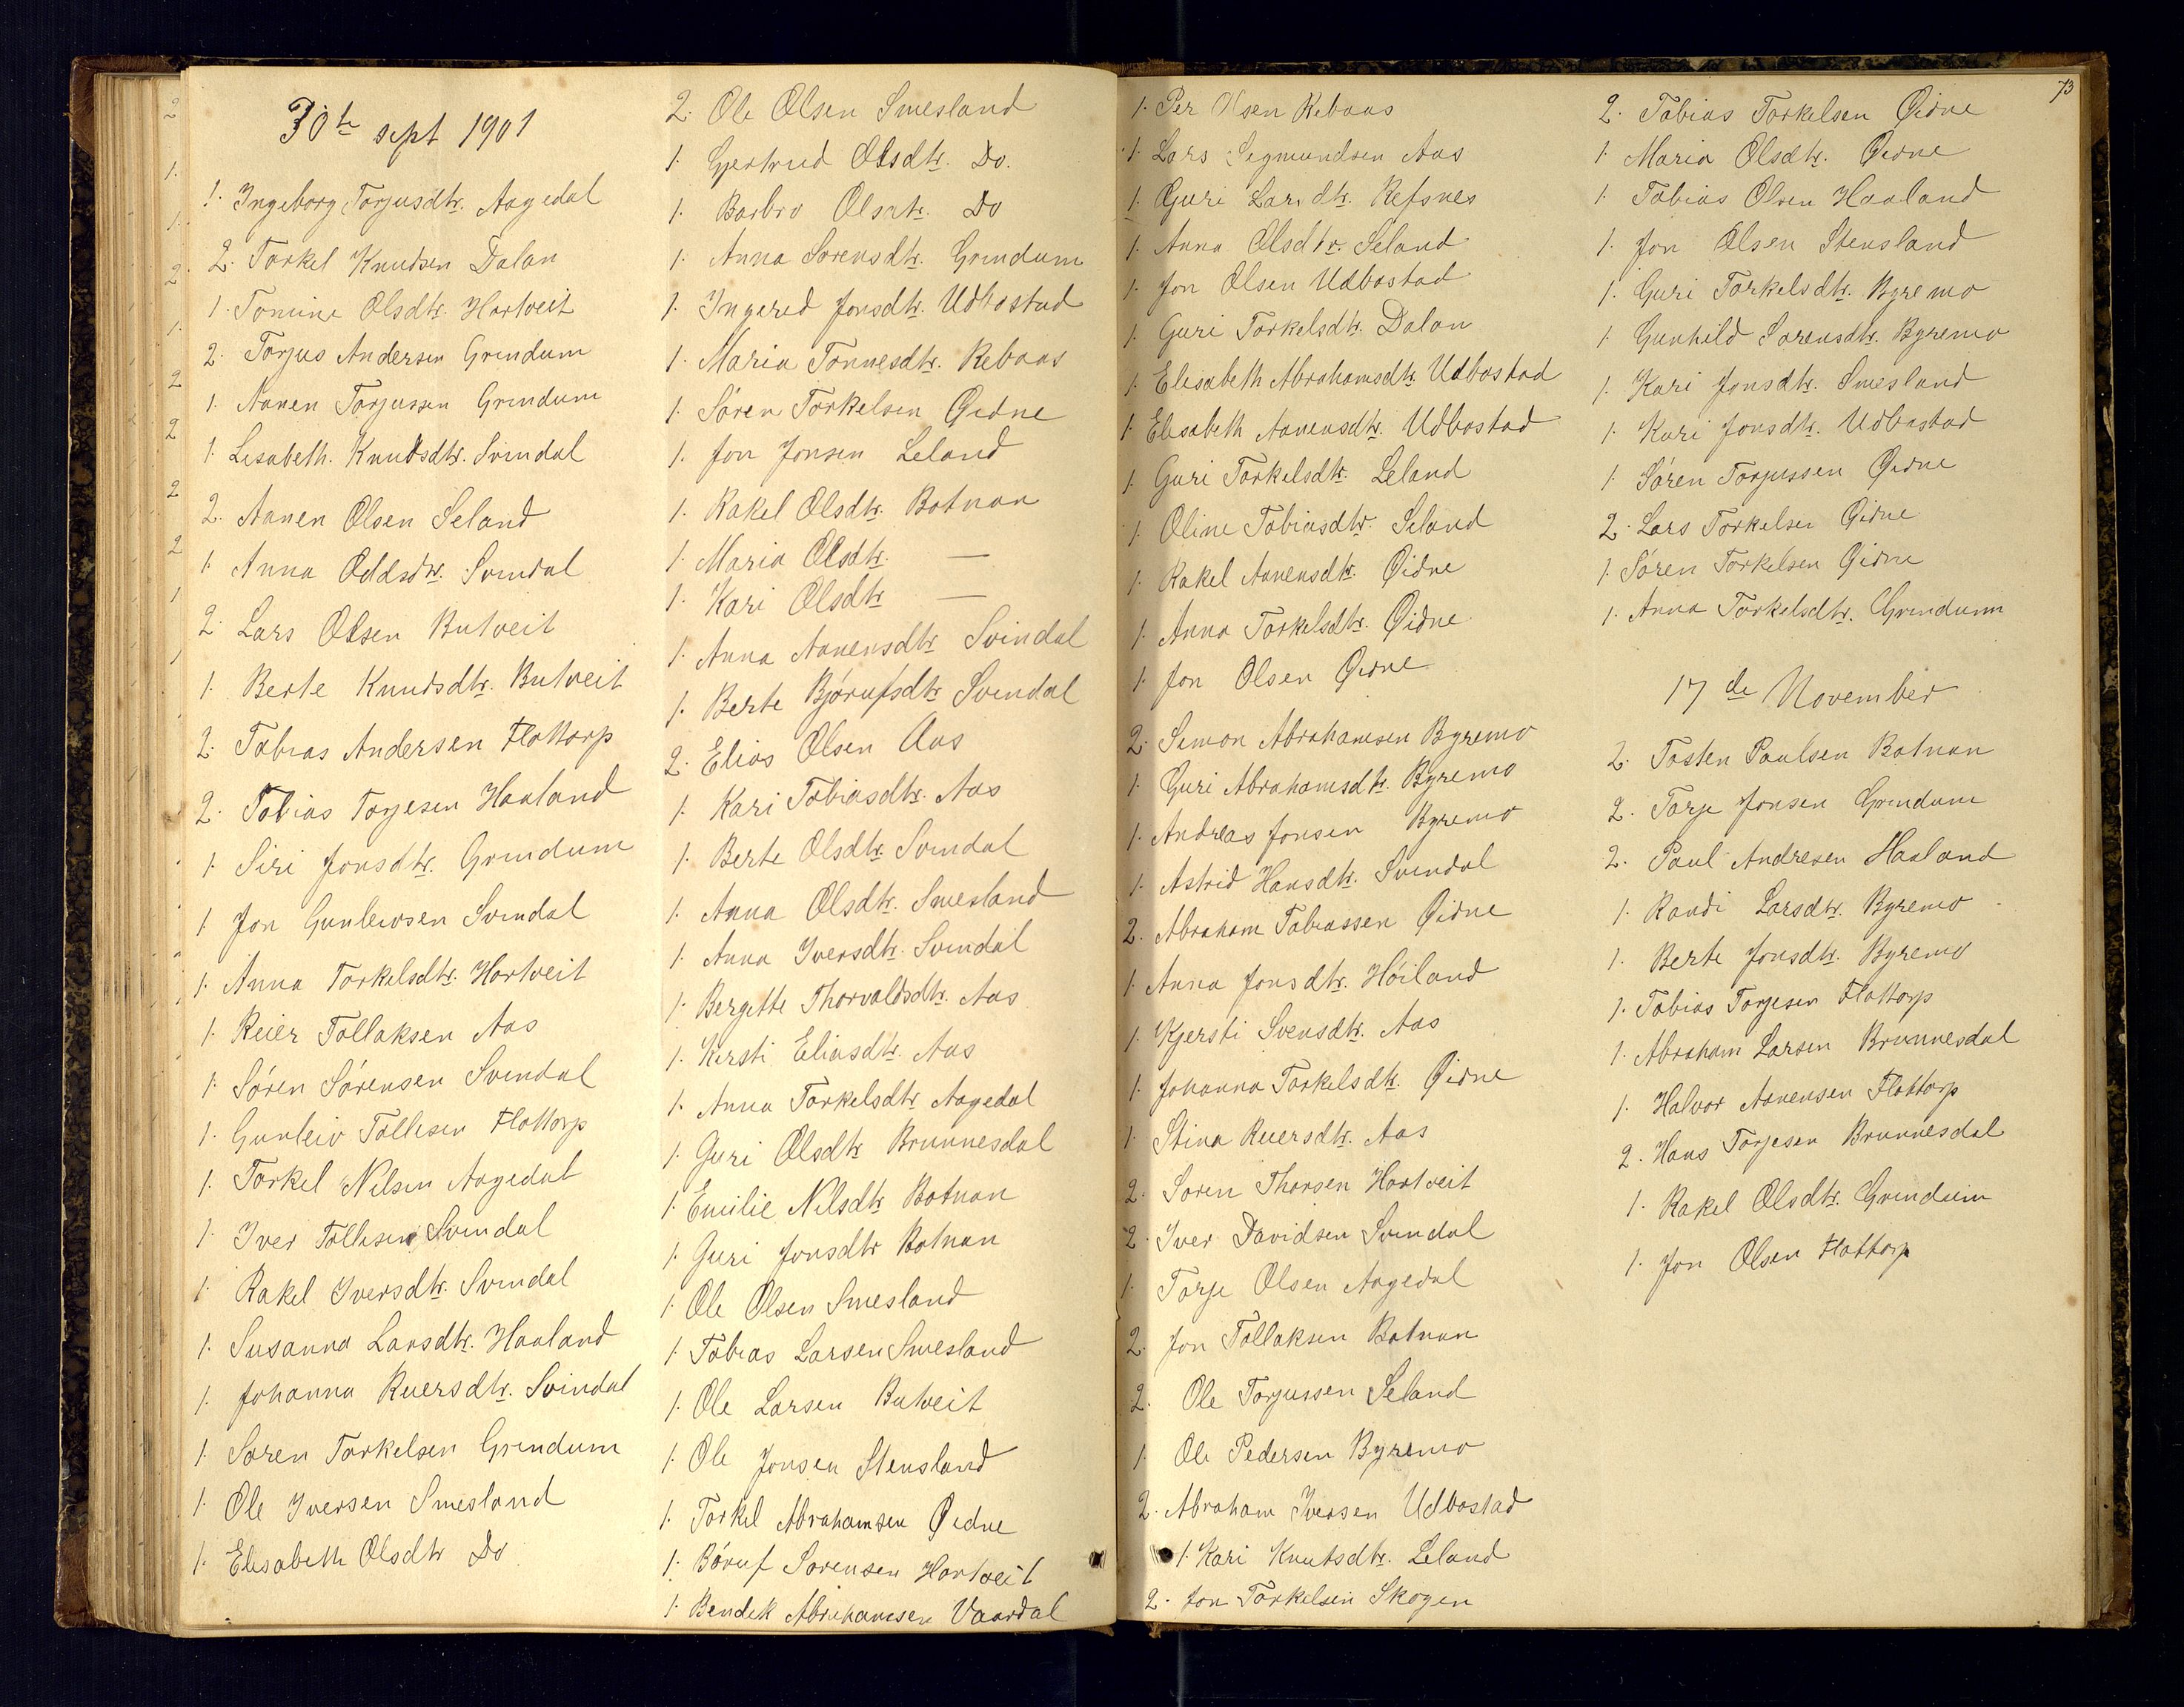 30te sept 1901
1. Ingeborg Torjusdtr. Aagedal
2. Torkel Knudsen Dalan
1. Tomine Olsdtr. Hortveit
2. Torjus Andersen Grindum
1. Aanen Torjussen Grindum
1. Lisabeth. Knudsdtr. Svindal
2. Aanen Olsen Seland
1. Anna Oddsdtr. Svindal
2. Lars Olsen Butveit
1. Berte Knudsdtr. Butveit
2. Tobias Andersen Flottorp
2. Tobias Torjesen Haaland
1. Siri Jonsdtr. Grindum
1 Jon Gunleivsen Svindal
1. Anna Torkelsdtr. Hortveit
1. Reier Tollaksen Aas
1. Sören Sörensen Svindal
1. Gunleiv Tollesen Flottorp
1. Torkel Nilsen Aagedal
1. Iver Tollesen Svindal
1. Rakel Iversdtr. Svindal
1. Susanna Larsdtr. Haaland
1. Johanna Reiersdtr. Svindal
1. Soren Torkelsen Grindum
1. Ole Iversen Smesland
1. Elisabeth Olsdtr Do
2. Ole Olsen Smesland
1. Gjertrud Olsdtr. Do.
1. Barbro Olsdtr. Do
1. Anna Sorensdtr. Grindum
1. Ingered Jonsdtr. Udbostad
1. Maria Tonnesdtr. Rebaas
1. Sören Torkelsen Øidne
1. Jon Jonsen Leland
1. Rakel Olsdtr. Botnan
1. Maria Olsdtr. —
1. Kari Olsdtr —
1. Anna Aanensdtr Svindal
1. Berte Bjórufsdtr Svindal
2. Elias Olsen Aas
1. Kari Tobiasdtr. Aas
1. Berte Olsdtr. Svindal
1. Anna Olsdtr. Smesland
1. Anna Iversdtr. Svindal
1. Bergitte Thorvaldsdtr. Aas
1. Kirsti Eliasdtr. Aas
1. Anna Torkelsdtr Aagedal
1. Guri Olsdtr Brunnesdal
1. Emilie Nilsdtr Botnan
1. Guri Jonsdtr Botnan
1. Ole Olsen Smesland
1. Tobias Larsen Smesland
1. Ole Larsen Butveit
1. Ole Jonsen Stensland
1. Torkel Abrahamsen Øidne
1. Bóruf Sorensen Hortveit
1. Bendik Abrahamsen Vaardal
1. Per Olsen Rebaas
1. Lars Segmundsen Aas
1. Guri Larsdtr. Refsnes
1. Anna Olsdtr. Seland
1. Jon Olsen Udbostad
1. Guri Torkelsdtr. Dalan
1. Elisabeth Abrahamsdtr. Udbostad
1. Elisabeth Aanensdtr. Udbostad
1. Guri Torkelsdtr. Leland
1. Oline Tobiasdtr. Seland
1. Rakel Aanensdtr. Øidne
1. Anna Torkelsdtr. Øidne
1. Jon Olsen Øidne
2. Simon Abrahamsen Byremo
1. Guri Abrahamsdtr. Byremo
1. Andreas Jonsen Byremo
1. Astrid Hansdtr. Svindal
2. Abraham Tobiassen Øidne
1. Anna Jonsdtr. Höiland
1. Kjersti Svensdtr. Aas
1. Johanna Torkelsdtr. Øidne
1. Stina Reiersdtr. Aas
2. Soren Thorsen Hortveit
2. Iver Davidsen Svindal
1. Torje Olsen Aagedal
2. Jon Tollaksen Botnan
2. Ole Torjussen Seland
1. Ole Pedersen Byremo
2. Abraham Iversen Udbostad
1. Kari Knutsdtr. Leland
2. Jon Torkelsen Skogen
73
2. Tobias Torkelsen Øidne
1. Maria Olsdtr. Øidne
1. Tobias Olsen Haaland
1. Jon Olsen Stensland
1. Guri Torkelsdtr. Byremo
1. Gunhild Sorensdtr. Byremo
1. Kari Jonsdtr. Smesland
1. Kari Jonsdtr. Udbostad
1. Sören Torjussen Øidne
2. Lars Torkelsen Øidne
1. Sören Torkelsen Øidne
1. Anna Torkelsdtr. Grindum
17de November
2. Tosten Paulsen Botnan
2. Torje Jonsen Grindum
2. Paul Andresen Haaland
1. Randi Larsdtr. Byremo
1. Berte Jonsdtr. Byremo
1. Tobias Torjesen Flottorp
1. Abraham Larsen Brunnesdal
1. Halvor Aanensen Flottorp
2. Hans Torjesen Brunnesdal
1. Rakel Olsdtr. Grindum
1. Jon Olsen Flottorp